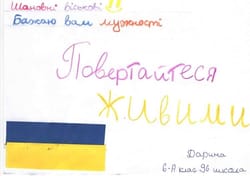 Шановні віськові !!
Бажаю вам мужності
Повертайтеся
живими
Дарина
6-А клас 96 школа